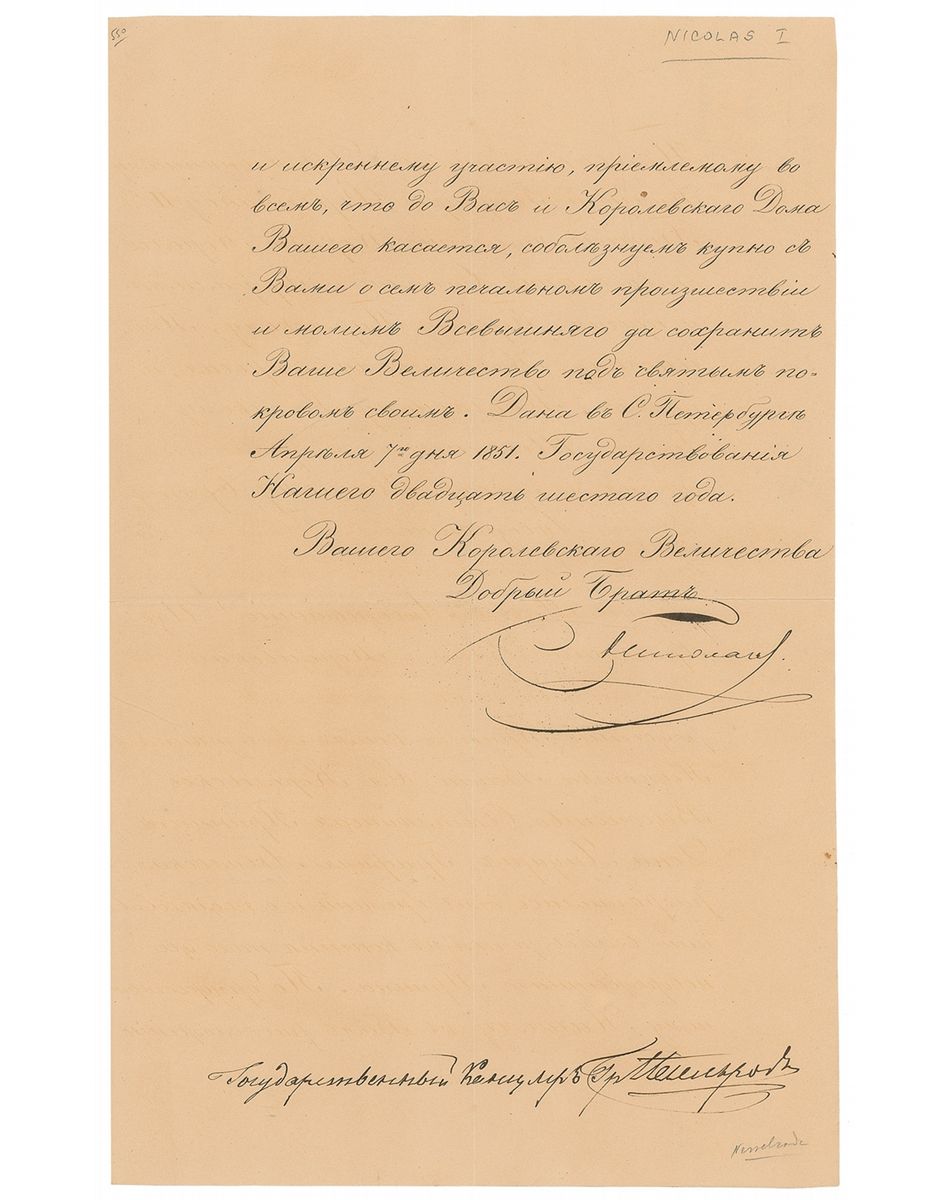 550
NICOLAS I
и искреннему участію, пріемлемому во
всемъ, что до Васъ и Королевскаго Дома
Вашего касается, соболѣзнуемъ купно съ
Вами о семъ печальномъ произшествіи
и молимъ Всевышняго да сохранитъ
Ваше Величество подъ святымъ по=
кровомъ своимъ. Дана въ С. Петербургѣ
Апрѣля 7го дня 1851. Государствованія
Нашего двадцать шестаго года.
Вашего Королевскаго Величества
Добрый Братъ
Николай.
Государственный Канцлеръ Гр. Нессельроде
Nesselrode